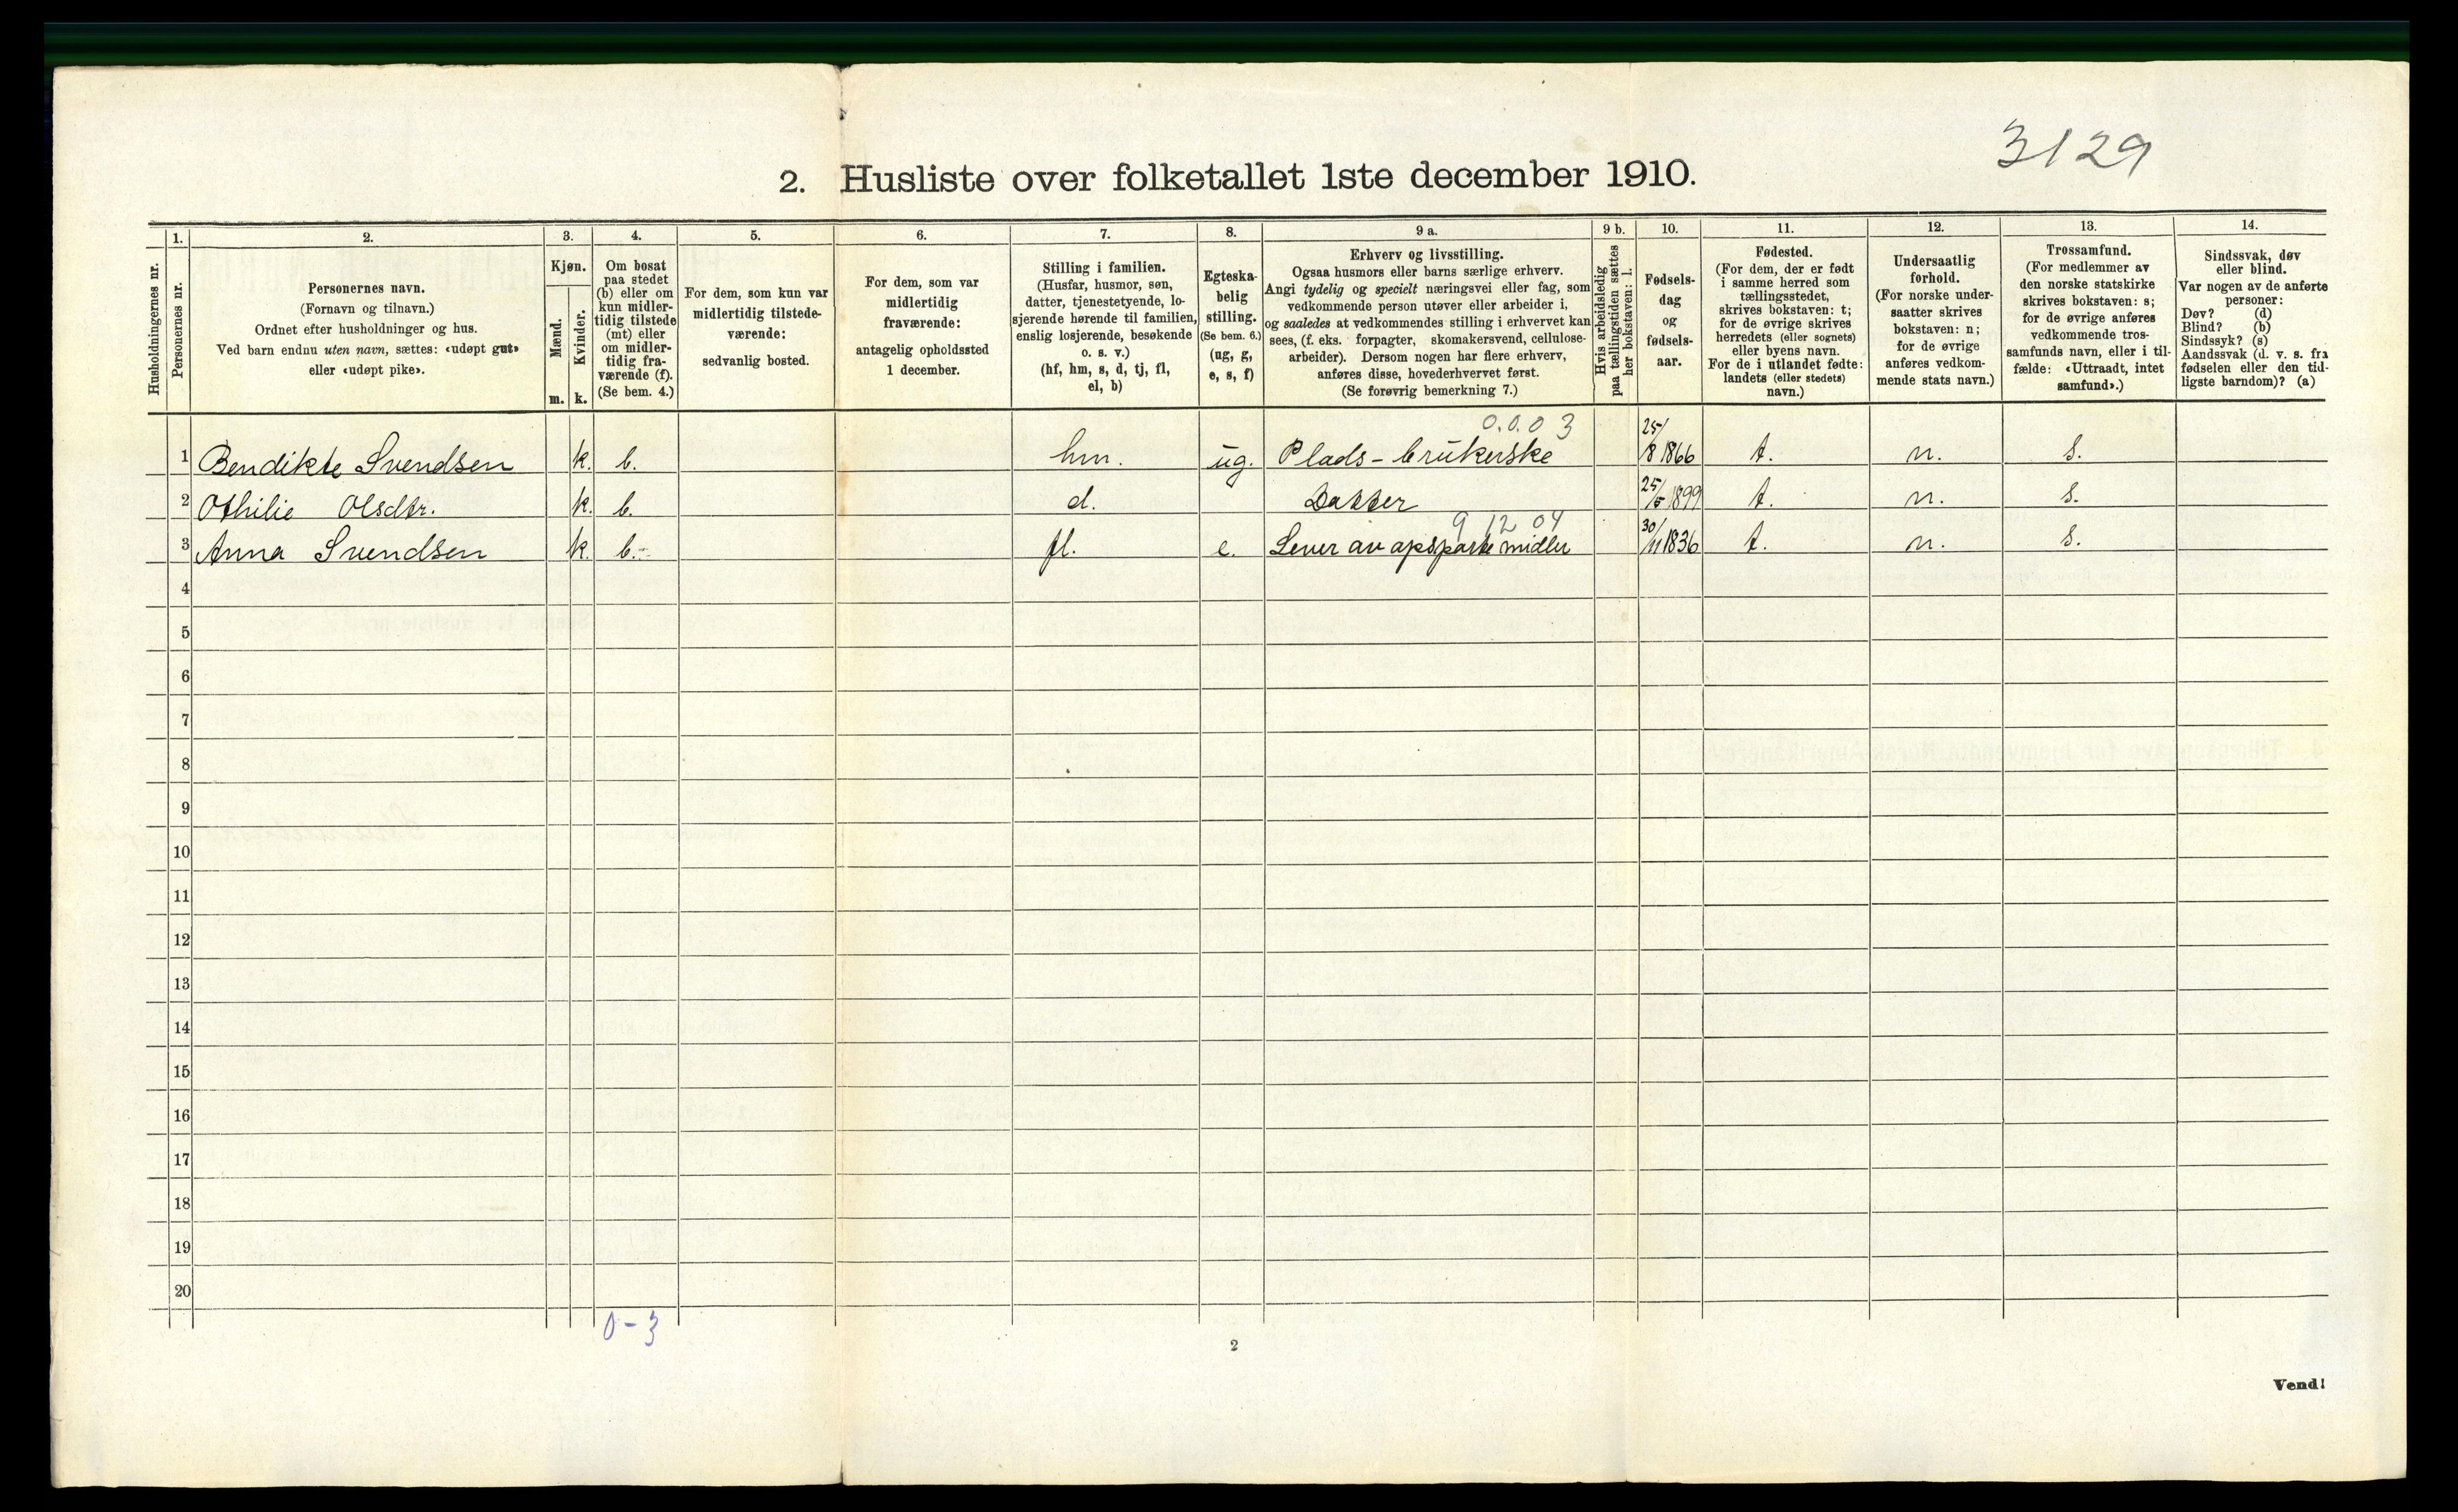 3129
2. Husliste over folketallet 1ste december 1910.
Husholdningernes nr.
1.
Personernes nr.
2.
Personernes navn.
(Fornavn og tilnavn.)
Ordnet efter husholdninger og hus.
Ved barn endnu uten navn, sættes: «udøpt gut»
eller «udøpt pike».
3.
Kjøn.
Mænd.
Kvinder.
m. k.
4.
Om bosat
paa stedet
(b) eller om
kun midler-
tidig tilstede
(mt) eller
om midler-
tidig fra-
værende (f).
(Se bem. 4.)
5.
For dem, som kun var
midlertidig tilstede-
værende:
sedvanlig bosted.
6.
For dem, som var
midlertidig
fraværende:
antagelig opholdssted
1 december.
7.
Stilling i familien.
(Husfar, husmor, søn,
datter, tjenestetyende, lo-
sjerende hørende til familien,
enslig losjerende, besøkende
o. s. v.)
(hf, hm, s, d, tj, fl,
el, b)
8.
Egteska-
belig
stilling.
(Se bem. 6.)
(ug, g,
e, s, f)
9 a.
Erhverv og livsstilling.
Ogsaa husmors eller barns særlige erhverv.
Angi tydelig og specielt næringsvei eller fag, som
vedkommende person utøver eller arbeider i,
og saaledes at vedkommendes stilling i erhvervet kan
sees, (f. eks. forpagter, skomakersvend, cellulose-
arbeider). Dersom nogen har flere erhverv,
anføres disse, hovederhvervet først.
(Se forøvrig bemerkning 7.)
9 b.
Hvis arbeidsledig
paa tællingstiden sættes
her bokstaven: l.
10.
Fødsels-
dag
og
fødsels-
aar.
11.
Fødested.
(For dem, der er født
i samme herred som
tællingsstedet,
skrives bokstaven: t;
for de øvrige skrives
herredets (eller sognets)
eller byens navn.
For de i utlandet fødte:
landets (eller stedets)
navn.)
12.
Undersaatlig
forhold.
(For norske under-
saatter skrives
bokstaven: n;
for de øvrige
anføres vedkom-
mende stats navn.)
13.
Trossamfund.
(For medlemmer av
den norske statskirke
skrives bokstaven: s;
for de øvrige anføres
vedkommende tros-
samfunds navn, eller i til-
fælde: «Uttraadt, intet
samfund».)
14.
Sindssvak, døv
eller blind.
Var nogen av de anførte
personer:
Døv? (d)
Blind? (b)
Sindssyk? (s)
Aandssvak (d. v. s. fra
fødselen eller den tid-
ligste barndom)? (a)
0.0.03
1 Bendikte Svendsen k. b. hm. ug. Plads-brukerske 25/8 1866 t. n. s.
2 Othilie Olsdtr. k. b. d. Datter 25/5 1899 t. n. s.
9 12 04
3 Anna Svendsen k. b. fl. e. Lever av opsparte midler 30/11 1836 t. n. s.
4
5
6
7
8
9
10
11
12
13
14
15
16
17
18
19
20
0-3
2
Vend!